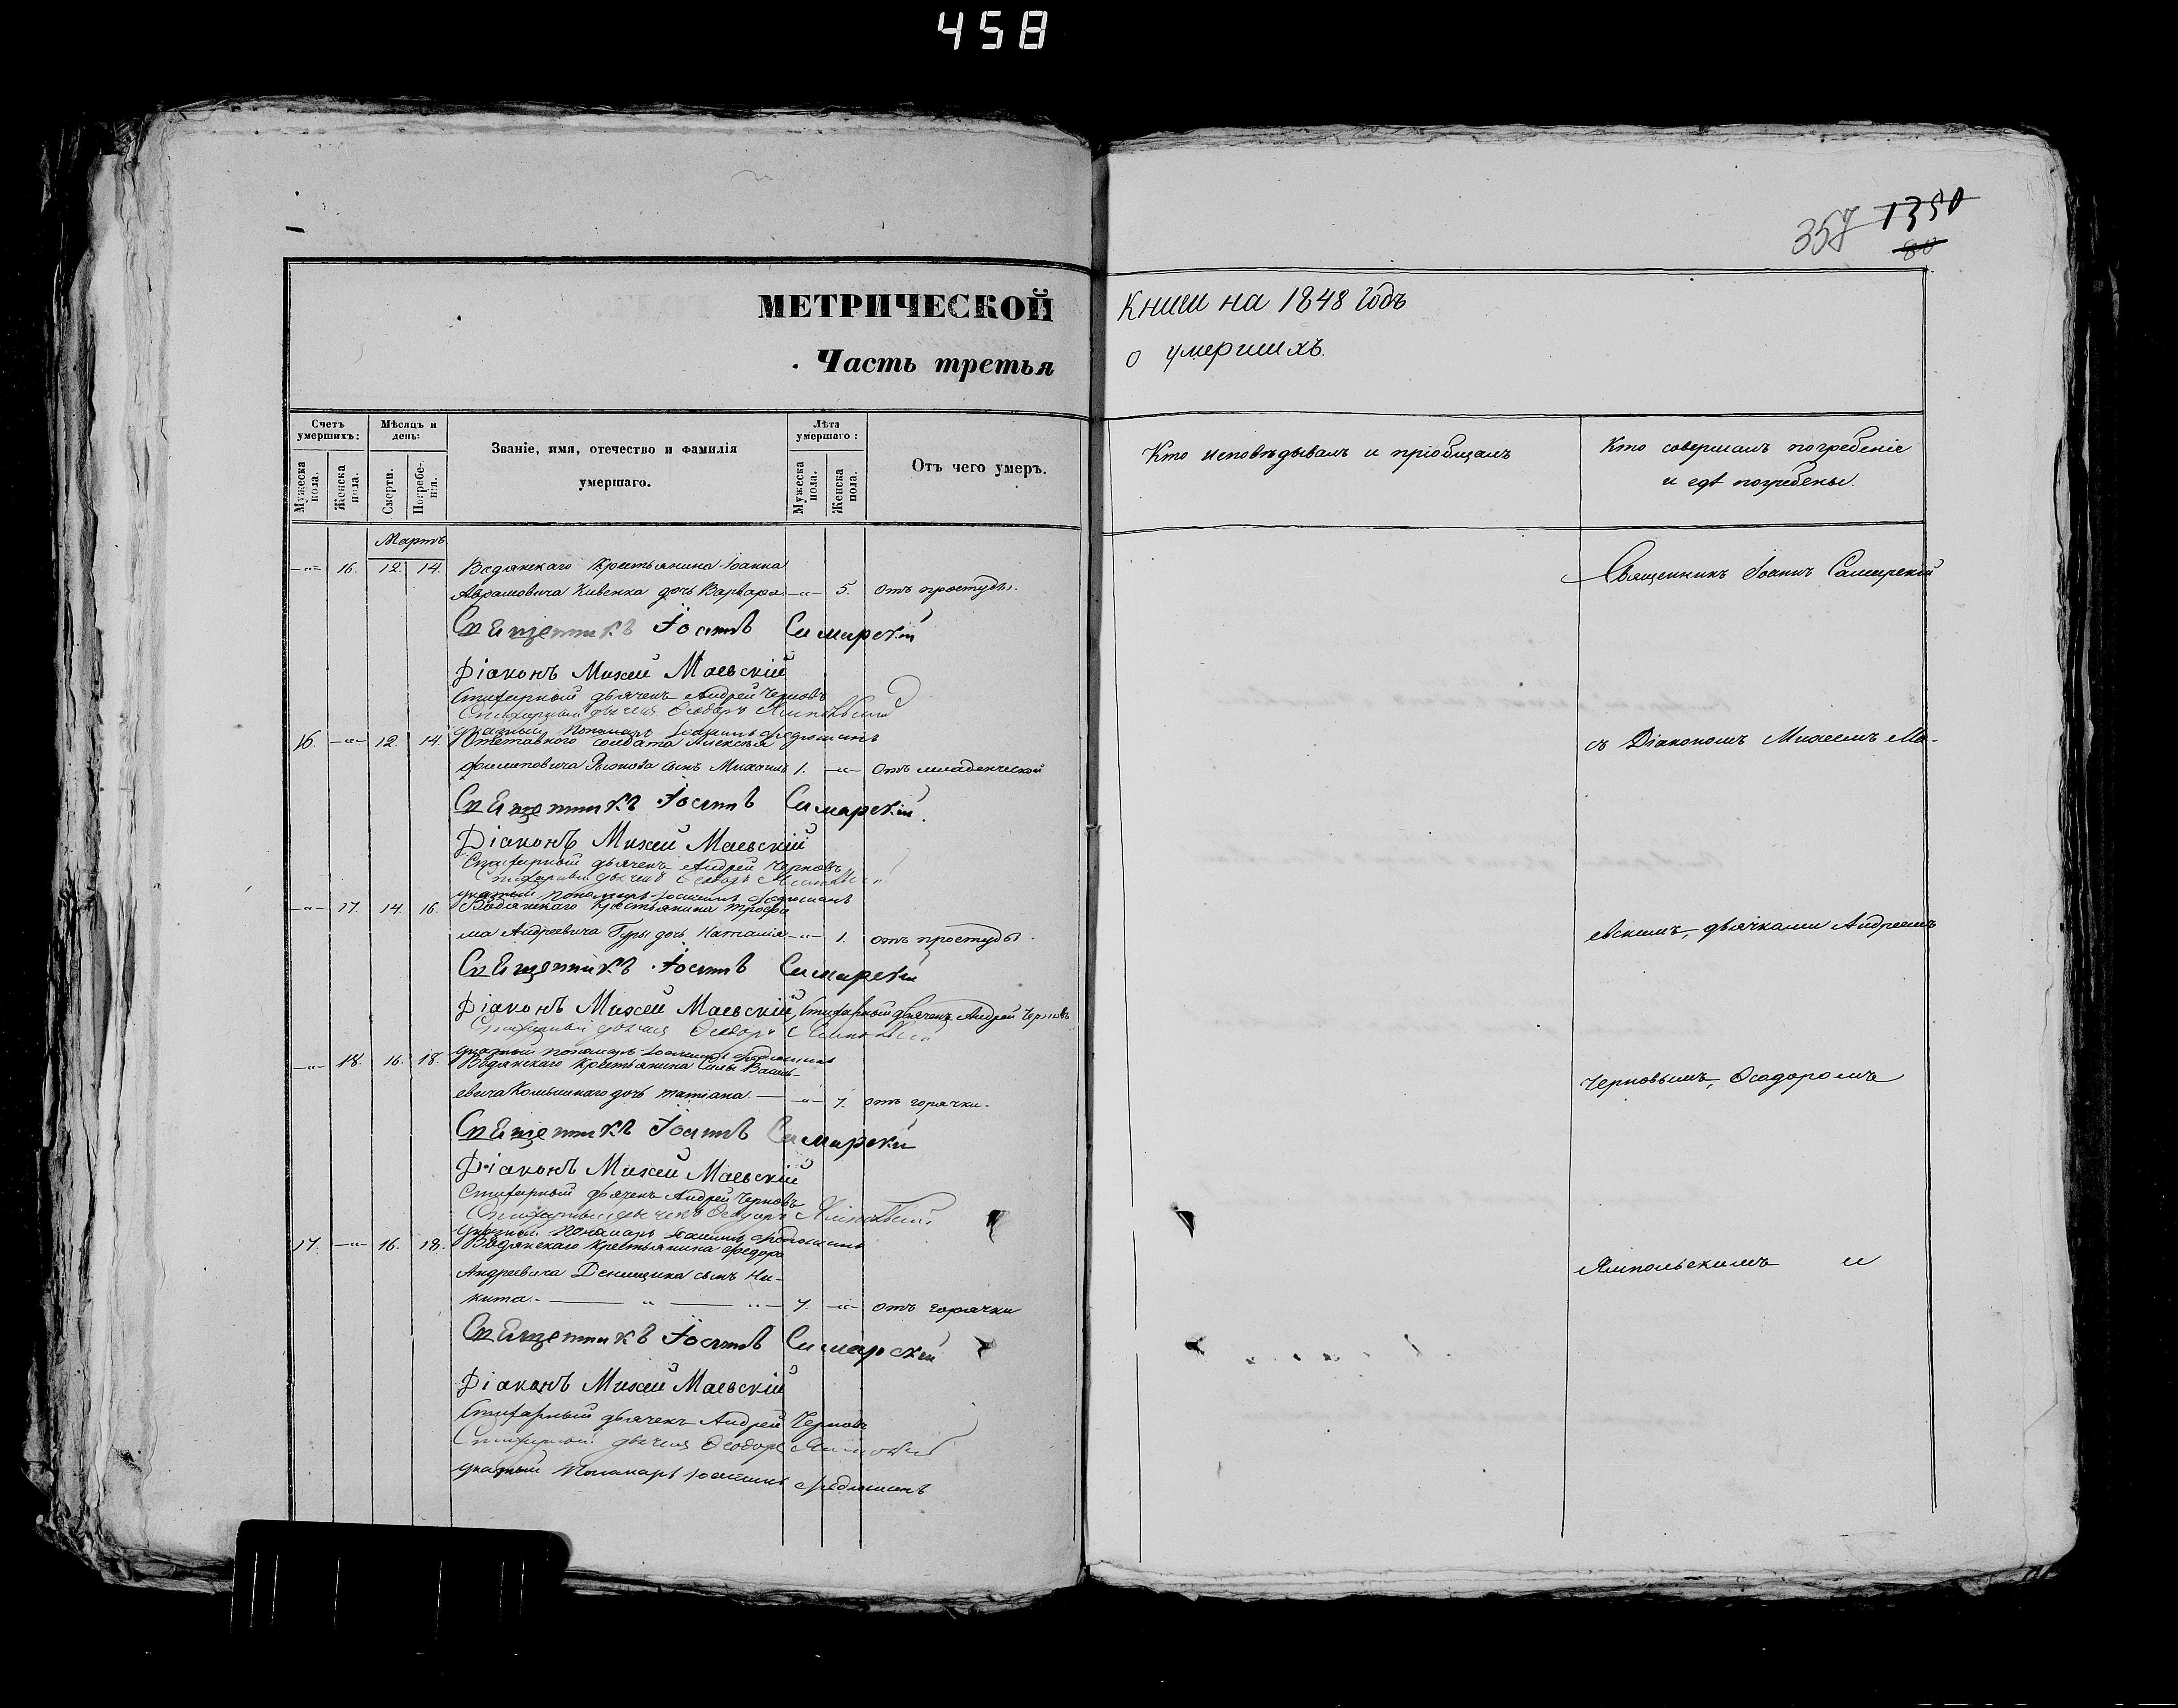 458
357 1350
80
МЕТРИЧЕСКОЙ
Часть третья
Книги на 1848 годъ
о умершихъ.
Счетъ умершихъ:
Мужеска пола.
Женска пола.
Мѣсяцъ и день:
Смерти.
Погребенія.
Званіе, имя, отечество и фамилія
умершаго.
Лѣта умершаго:
Мужеска пола.
Женска пола.
Отъ чего умеръ.
Кто исповѣдывалъ и пріобщалъ
Кто совершалъ погребеніе
и гдѣ погребены.
Мартъ
-"- 16. 12. 14. Водянскаго Крестьянина Іоанна
Аврамовича Кивенка дочь Варвара -"- 5. отъ простуды.
Священникъ Іоаннъ Самарскій
Діаконъ Михей Маевскій
Стихарный дьячекъ Андрей Черновъ
Стихарный дьячекъ Ѳеодоръ Ямпольскій
указный пономарь
16. -"- 12. 14. Отставного солдата Алексѣя
Филиповича сынъ Михаилъ 1. -"- отъ младенческой
Священникъ Іоаннъ Самарскій.
Діаконъ Михей Маевскій
Стихарный дьячекъ Андрей Черновъ
Стихарный дьячекъ Ѳеодоръ Ямпольскій
указный пономарь
-"- 17. 14. 16. Водянскаго Крестьянина Трофи
ма Андреевича Гуры дочь Наталія -"- 1. отъ простуды.
Священникъ Іоаннъ Самарскій
Діаконъ Михей Маевскій, Стихарный дьячекъ Андрей Черновъ
Стихарный дьячекъ Ѳеодоръ Ямпольскій
указный пономарь
-"- 18. 16. 18. Водянскаго Крестьянина Силы Василь-
евича дочь татіана. -"- 7. отъ горячки.
Священникъ Іоаннъ Самарскій
Діаконъ Михей Маевскій
Стихарный дьячекъ Андрей Черновъ
Стихарный дьячекъ Ѳеодоръ Ямпольскій
указный пономарь
17. -"- 16. 18. Водянскаго Крестьянина Федора
Андреевича Денищика сынъ Ни-
кита. - " - " - 7. -"- отъ горячки
Священникъ Іоаннъ Самарскій
Діаконъ Михей Маевскій
Стихарный дьячекъ Андрей Черновъ
Стихарный дьячекъ Ѳеодоръ Ямпольскій
указный Пономарь
Священникъ Іоаннъ Самарскій
съ Діакономъ Михеемъ Ма-
евскимъ, дьячками Андреемъ
Черновымъ, Ѳеодоромъ
Ямпольскимъ и